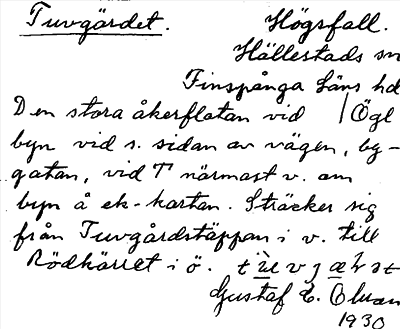 Tuvgärdet. Högsfall.
Hällestads sn
Finspånga läns hd
Den stora åkerflatan vid / Ögl
byn vid s. sidan av vägen, by-
gatan, vid T närmast v. om
byn å ek-kartan. Sträcker sig
från Tuvgårdstäppan i v. till
Rödkärret i ö.
Gustaf E. Öman
1930